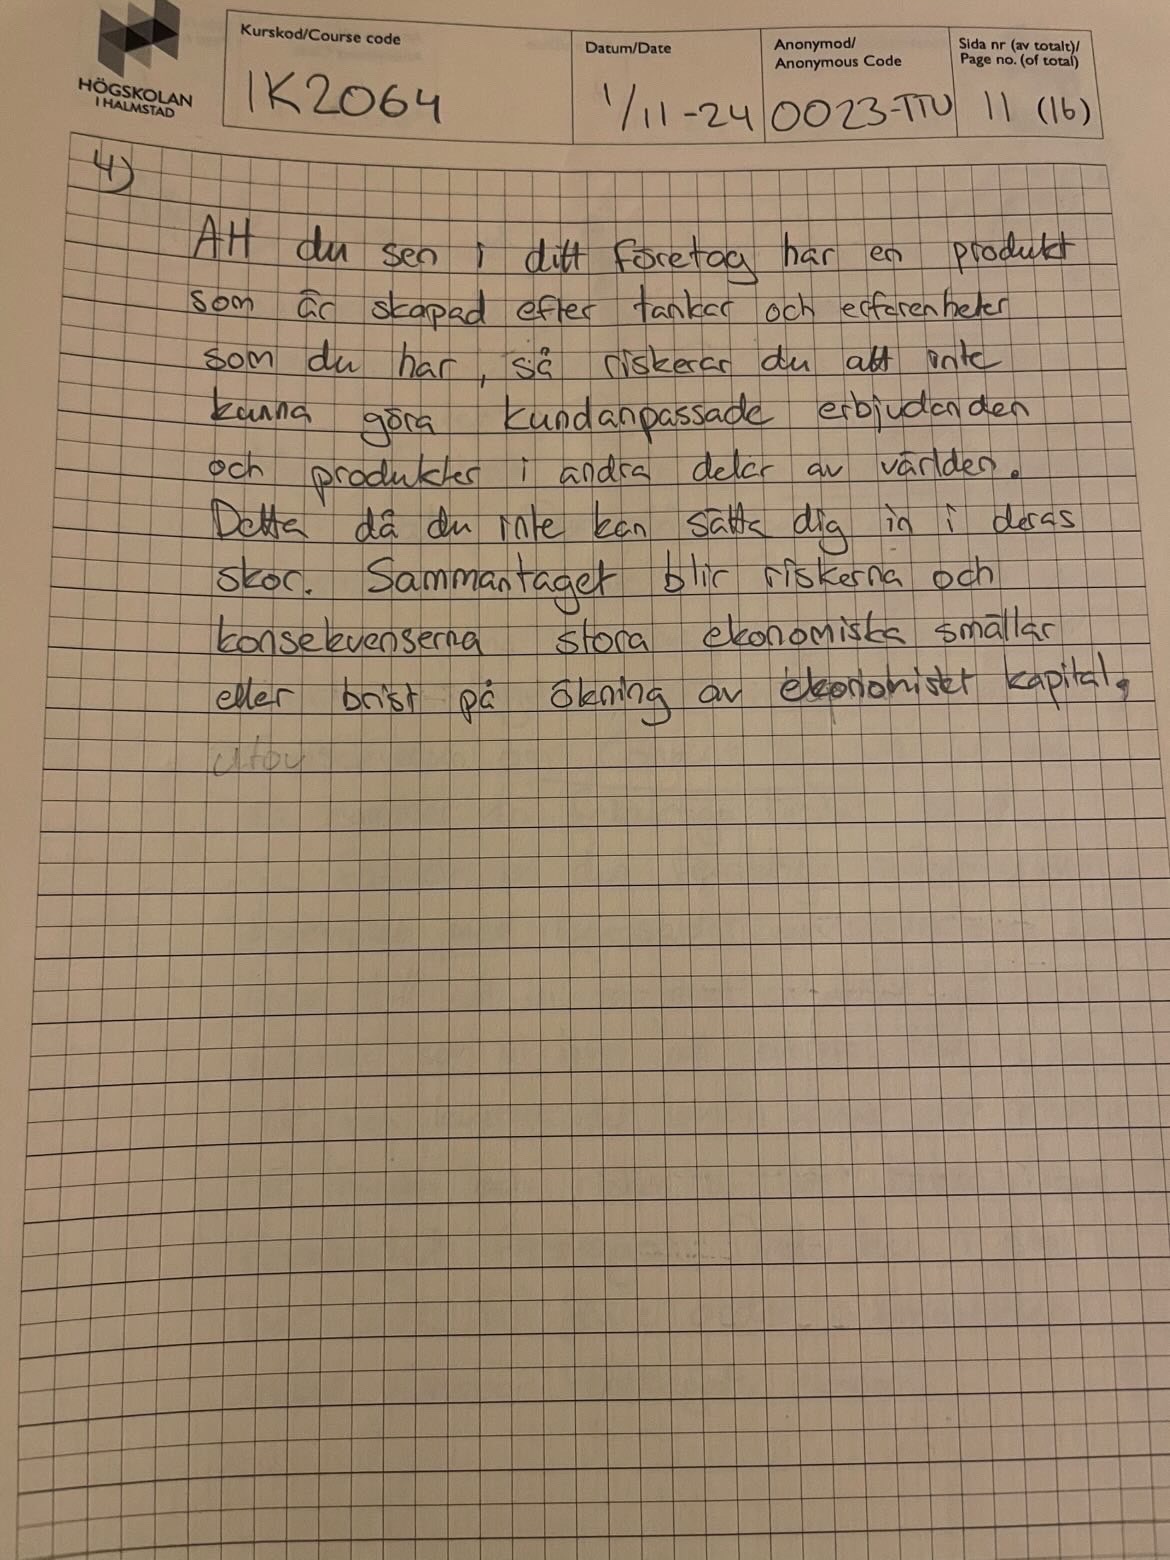 HÖGSKOLAN
I HALMSTAD
Kurskod/Course code
IK2064
Datum/Date
1/11-24
Anonymod/
Anonymous Code
0023-TTU
Sida nr (av totalt)/
Page no. (of total)
11 (16)
4)
Att du sen i ditt företag har en produkt
som är skapad efter tankar och erfarenheter
som du har, så riskerar du att inte
kunna göra kundanpassade erbjudanden
och produkter i andra delar av världen.
Detta då du inte kan sätta dig in i deras
skor. Sammantaget blir riskerna och
konsekvenserna stora ekonomiska smällar
eller brist på ökning av ekonomiskt kapital.
utöv